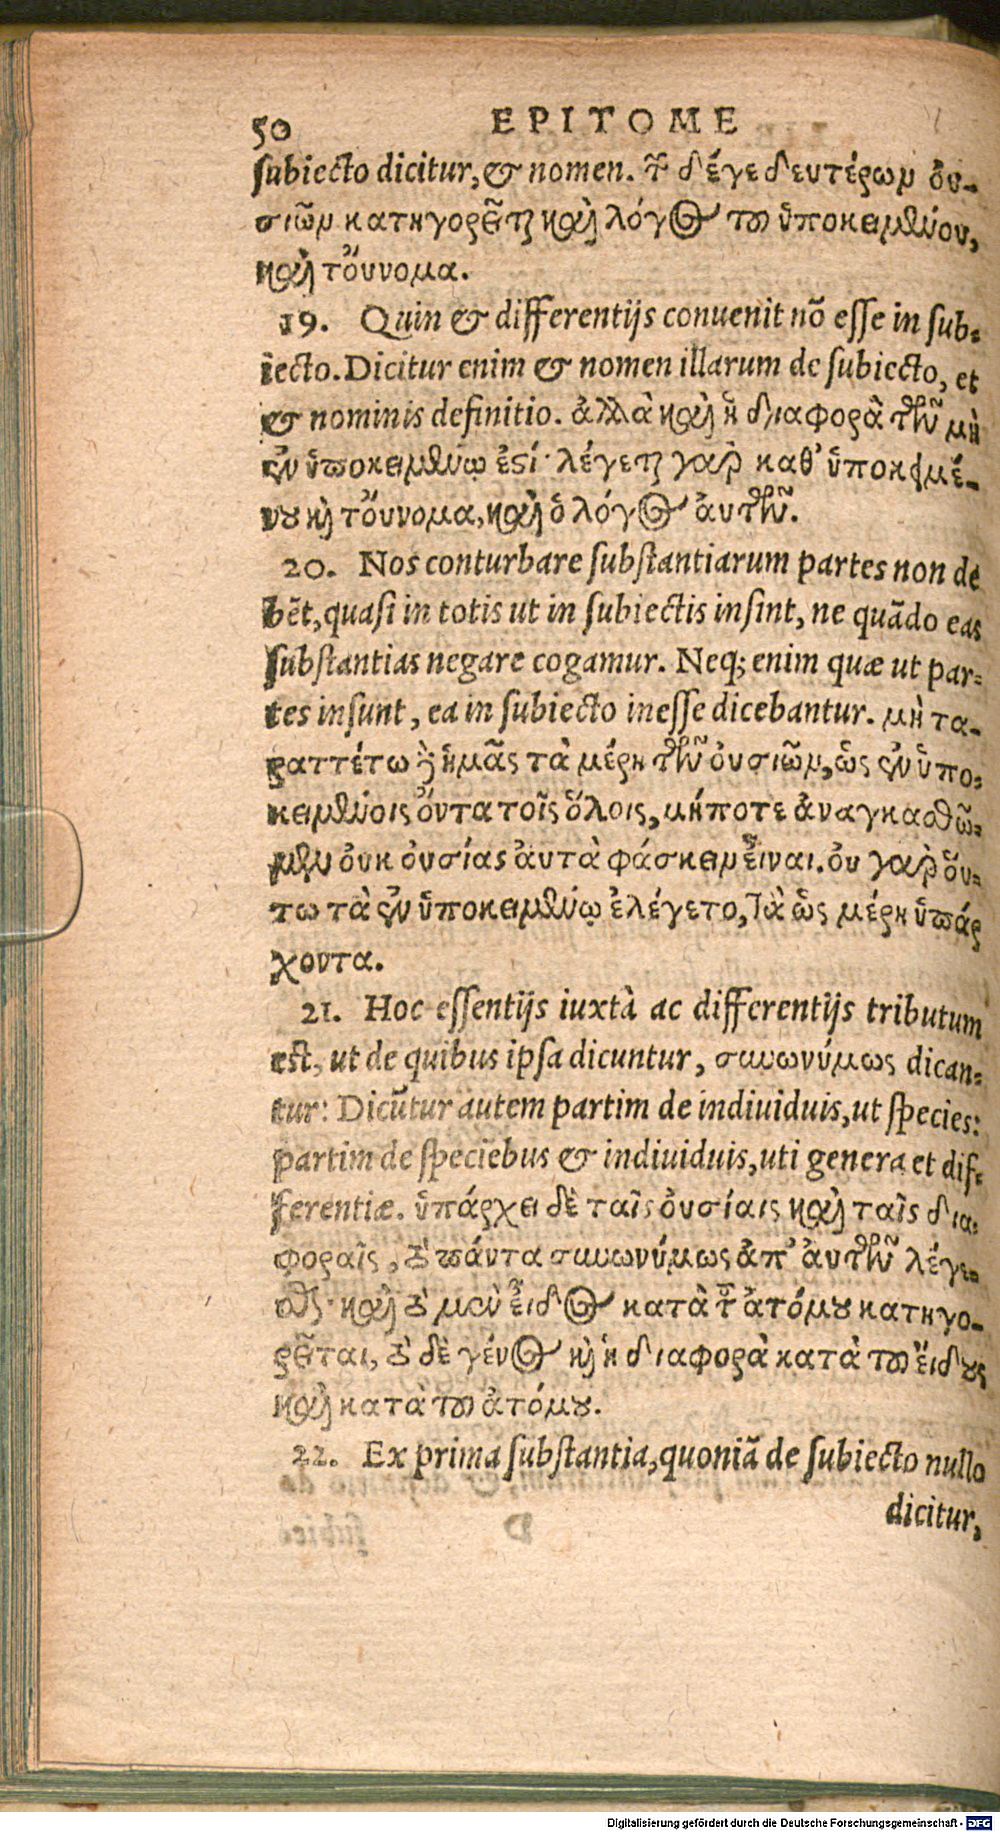 50 EPITOME
subiecto dicitur, & nomen. τῶν δέ γε δευτέρων ὀυ-
σιῶν κατηγορεῖται καὶ λόγος τοῦ ὑποκειμένου,
καὶ τὄυνομα.
19. Quin & differentijs conuenit nõ esse in sub-
iecto. Dicitur enim & nomen illarum de subiecto, et
& nominis definitio. ἀλλὰ καὶ ἡ διαφορὰ τῶν μὴ
ἐν ὑποκειμένῳ ἐστί· λέγεται γὰρ καθ' ὑποκειμέ-
νου καὶ τὄυνομα, καὶ ὁ λόγος ἀυτῶν.
20. Nos conturbare substantiarum partes non de
bẽt, quasi in totis ut in subiectis insint, ne quãdo eas
substantias negare cogamur. Neq; enim quæ ut par-
tes insunt, ea in subiecto inesse dicebantur. μὴ τα-
ραττέτω δὲ ἡμᾶς τὰ μέρη τῶν ὀυσιῶν, ὡς ἐν ὑπο-
κειμένοις ὄντα τοῖς ὅλοις, μήποτε ἀναγκασθῶ-
μεν ὀυκ ὀυσίας ἀυτὰ φάσκειν εἶναι. ὀυ γὰρ ὅυ-
τω τὰ ἐν ὑποκειμένῳ ἐλέγετο, τὰ ὡς μέρη ὑπάρ
χοντα.
21. Hoc essentijs iuxtà ac differentijs tributum
est, ut de quibus ipsa dicuntur, συνωνύμως dican-
tur: Dicũtur autem partim de indiuiduis, ut species:
partim de speciebus & indiuiduis, uti genera et dif-
ferentiæ. ὑπάρχει δὲ ταῖς ὀυσίαις καὶ ταῖς δια-
φοραῖς, τὸ πάντα συνωνύμως ἀπ' ἀυτῶν λέγε-
σθαι· καὶ τὸ μὲν εἶδος κατὰ τοῦ ἀτόμου κατηγο-
ρεῖται, τὸ δὲ γένος καὶ ἡ διαφορὰ κατὰ τοῦ εἴδους
καὶ κατὰ τοῦ ἀτόμου.
22. Ex prima substantia, quoniã de subiecto nullo
dicitur,
Digitalisierung gefördert durch die Deutsche Forschungsgemeinschaft - DFG